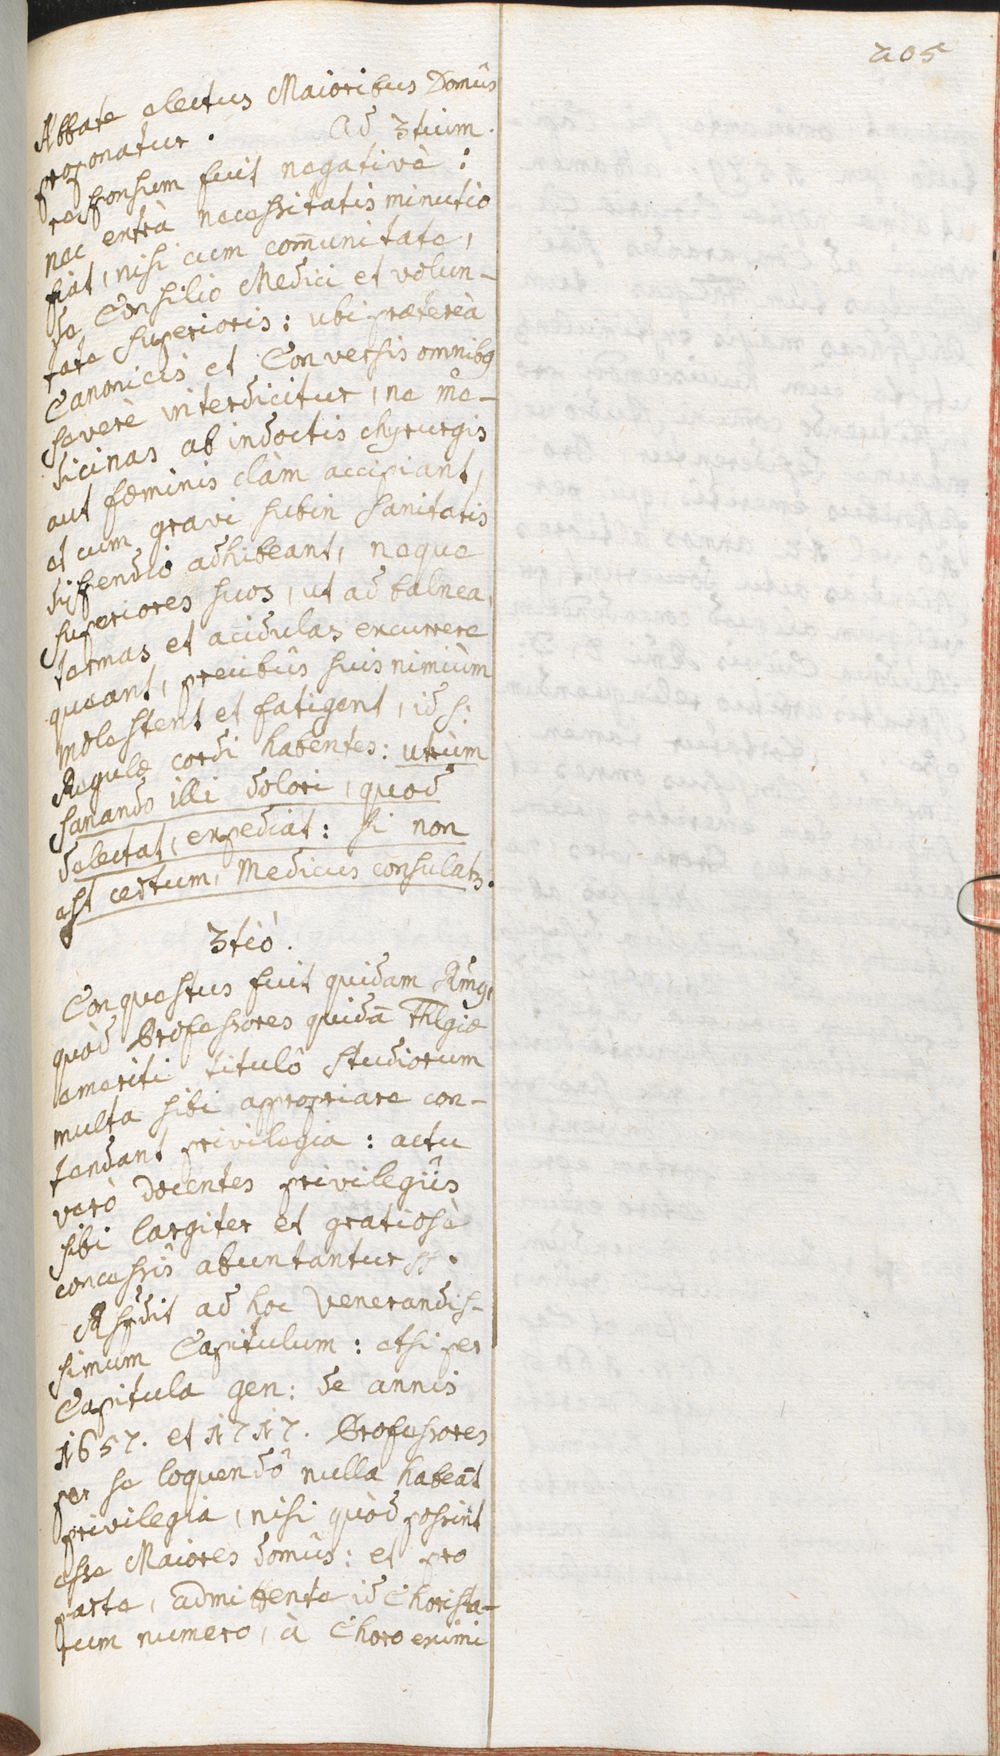 205
Abbate electus Maioribus Domûs
proponatur. Ad 3tium.
responsum fuit negativè:
nec extrà necessitatis minutio
fiat, nisi cum com̄unitate,
de Consilio Medici et volun-
tate Superioris: ubi prætereà
Canonicis et Conversis omnibq
severè interdicitur, ne me-
dicinas ab indoctis chyrurgis
aut fœminis clàm accipiant,
et cum gravi subin sanitatis
dispendiô adhibeant, neque
superiores suos, ut ad balnea,
termas et acidulas excurrere
queant, precibûs suis nimiùm
molestent et fatigent, id S:
Regulæ cordi habentes: utrùm
sanando illi dolori, quod
delectat, expediat: si non
est certum, Medicus consulatr.
3tiò.
Conquestus fuit quidam Rmg,
quòd Professores quidā Thlgiæ
emeriti titulô studiorum
multa sibi appropriare con-
tendant privilegia: actu
verò docentes privilegiîs
sibi largiter et gratiosè
concessîs abuntantur ss.
Rspdit ad hoc Venerandis-
simum Capitulum: etsi per
Capitula gen: de annis
1657. et 1717. Professores
per se loquendô nulla habeāt
privilegia, nisi quòd possint
esse Maiores domûs: et pro
parte, admittente id Chorista-
rum numero, à Choro eximi